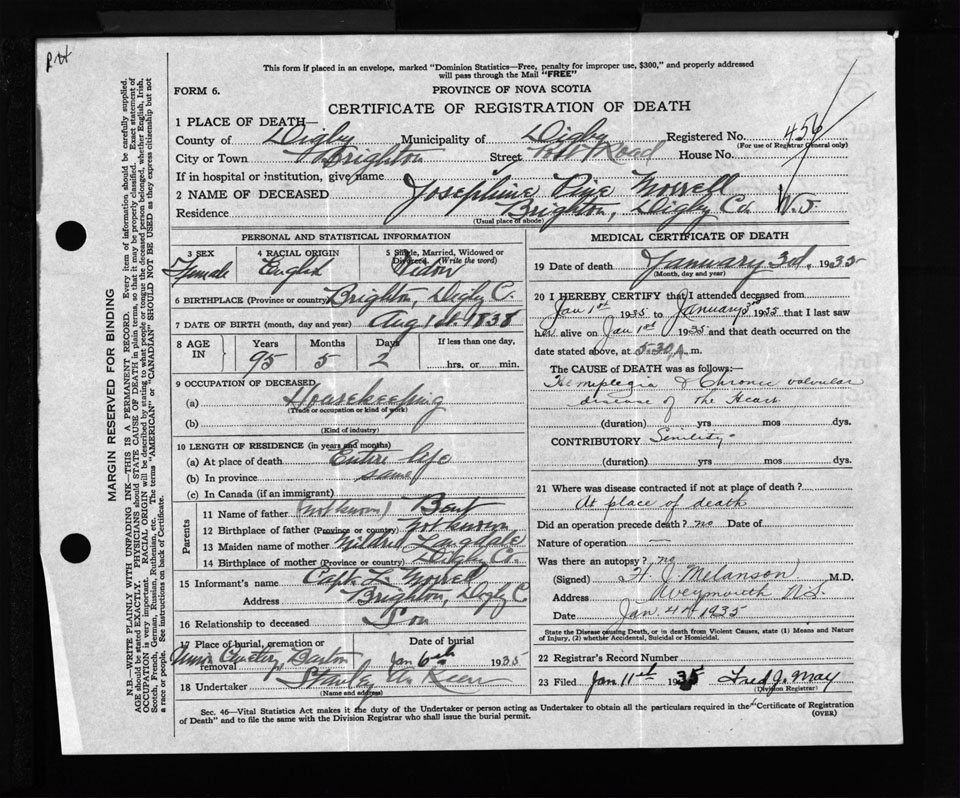 This form if placed in an envelope, marked "Dominion Statistics—Free, penalty for improper use, $300," and properly addressed
will pass through the Mail "FREE"
FORM 6.
PROVINCE OF NOVA SCOTIA
CERTIFICATE OF REGISTRATION OF DEATH
1 PLACE OF DEATH—
County of Digby Municipality of Digby Registered No. 456
(For use of Registrar General only)
City or Town Brighton Street Road House No.
If in hospital or institution, give name
2 NAME OF DECEASED Josephine Morrell
Residence Brighton, Digby Co. N.S.
(Usual place of abode)
PERSONAL AND STATISTICAL INFORMATION
3 SEX 4 RACIAL ORIGIN 5 Single, Married, Widowed or
Divorced. (Write the word)
Female English Widow
6 BIRTHPLACE (Province or country) Brighton, Digby C.
7 DATE OF BIRTH (month, day and year) Aug 1st. 1838
8 AGE IN Years Months Days If less than one day,
95 5 2 hrs. or min.
9 OCCUPATION OF DECEASED
(a) Housekeeping
(Trade or occupation or kind of work)
(b)
(Kind of industry)
10 LENGTH OF RESIDENCE (in years and months)
(a) At place of death Entire life
(b) In province same
(c) In Canada (if an immigrant)
Parents
11 Name of father (not known) Bent
12 Birthplace of father (Province or country) Not known
13 Maiden name of mother Mildred Langdale
14 Birthplace of mother (Province or country) Digby Co.
15 Informant's name Capt. L. Morrell
Address Brighton, Digby C.
16 Relationship to deceased Son
17 Place of burial, cremation or Date of burial
removal Union Cemetery, Barton Jan 6th 1935
18 Undertaker Stanley
(Name and address)
MEDICAL CERTIFICATE OF DEATH
19 Date of death January 3rd, 1935
(Month, day and year)
20 I HEREBY CERTIFY that I attended deceased from
Jan 1st 1935 to January 3rd 1935 that I last saw
her alive on Jan 1st 1935 and that death occurred on the
date stated above, at 5.30 A. m.
The CAUSE of DEATH was as follows:—
Hemiplegia & Chronic valvular
disease of the Heart
(duration) yrs mos dys.
CONTRIBUTORY Senility
(duration) yrs mos dys.
21 Where was disease contracted if not at place of death?
At place of death
Did an operation precede death? no Date of
Nature of operation —
Was there an autopsy? no
(Signed) H J Melanson M.D.
Address Weymouth N.S.
Date Jan. 4th 1935
State the Disease causing Death, or in death from Violent Causes, state (1) Means and Nature
of Injury, (2) whether Accidental, Suicidal or Homicidal.
22 Registrar's Record Number
23 Filed Jan 11th 1935 Fred J. May
(Division Registrar)
Sec. 46—Vital Statistics Act makes it the duty of the Undertaker or person acting as Undertaker to obtain all the particulars required in the "Certificate of Registration
of Death" and to file the same with the Division Registrar who shall issue the burial permit.
(OVER)
MARGIN RESERVED FOR BINDING
N.B.—WRITE PLAINLY WITH UNFADING INK—THIS IS A PERMANENT RECORD. Every item of information should be carefully supplied.
AGE should be stated EXACTLY. PHYSICIANS should STATE CAUSE OF DEATH in plain terms, so that it may be properly classified. Exact statement of
OCCUPATION is very important. RACIAL ORIGIN will be described by stating to what people or tongue the deceased person belonged, whether English, Irish,
Scotch, French, German, Russian, Ruthenian, etc. The terms "AMERICAN" or "CANADIAN" SHOULD NOT BE USED as they express citizenship but not
a race or people. See instructions on back of Certificate.